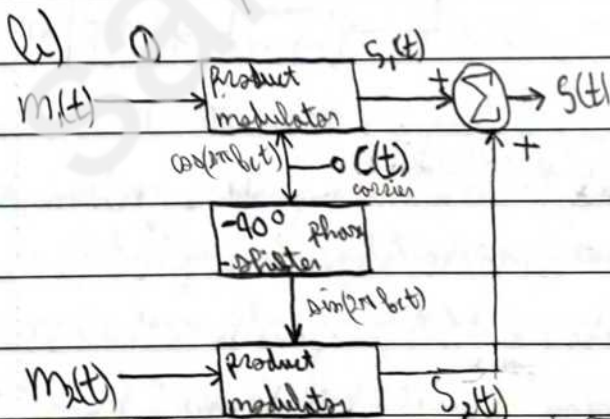 b) ①
S₁(t)
m₁(t) product modulator + Σ S(t)
cos(2πfct) C(t) +
carrier
-90° phase
-shifter
sin(2πfct)
m₂(t) product modulator S₂(t)